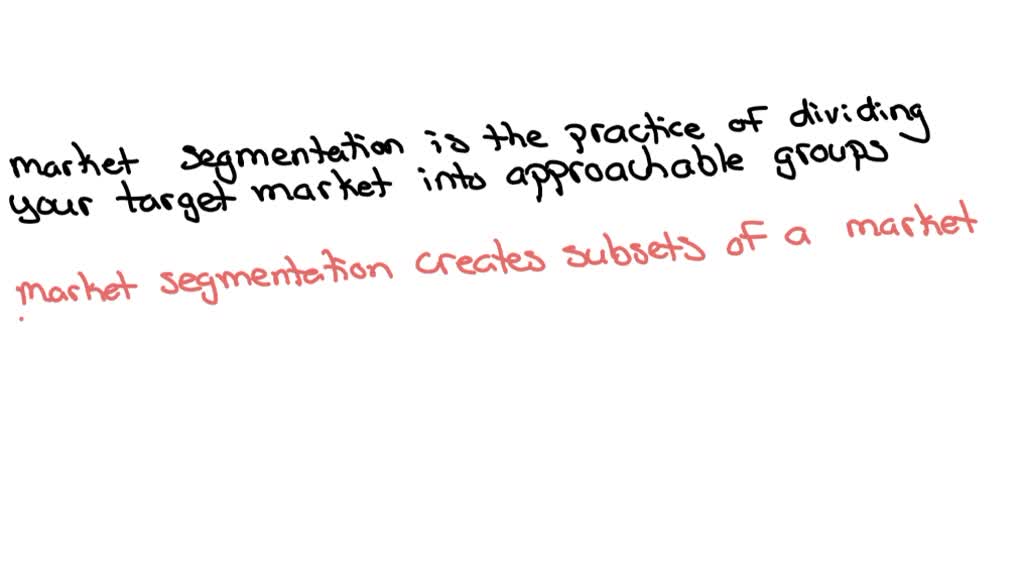 market segmentation is the practice of dividing
your target market into approachable groups
market segmentation creates subsets of a market